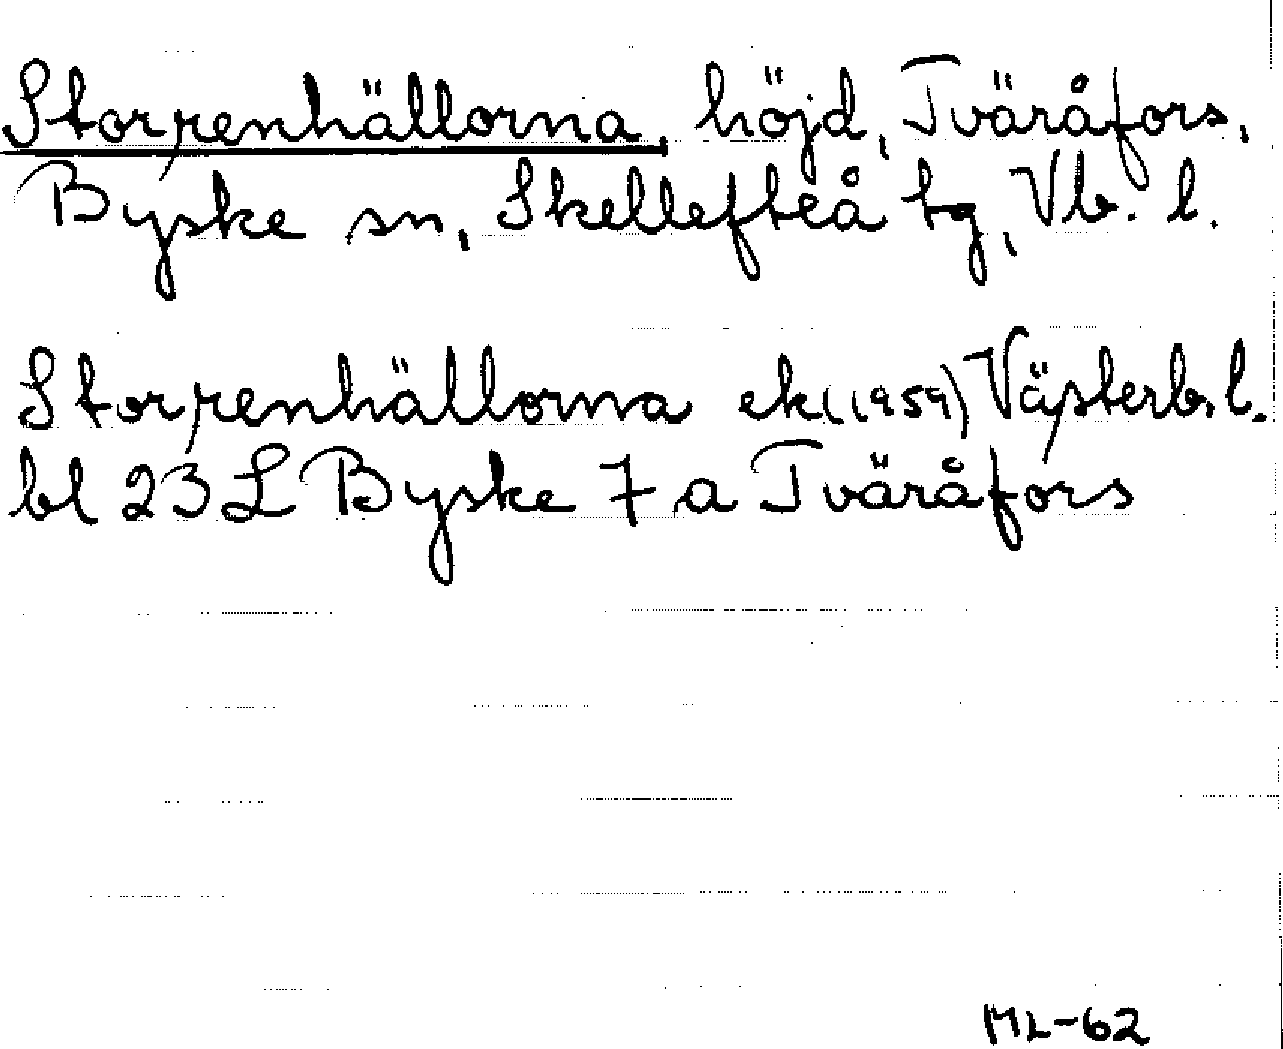 Storrenhällorna, höjd, Tväråfors,
Byske sn, Skellefteå tg, Vb. l.
Storrenhällorna ek (1959) Västerb. l.
bl 23 L Byske 7 a Tväråfors
ML-62